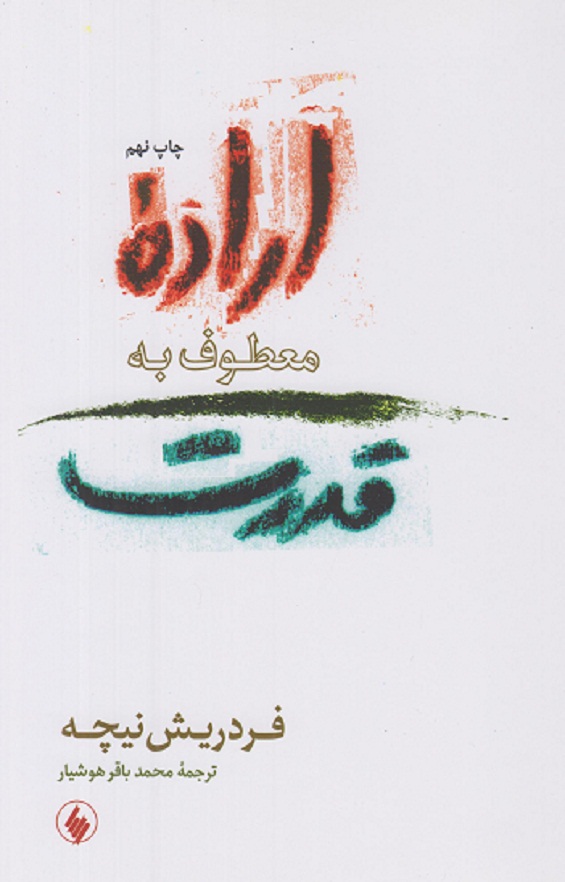 چاپ نهم
ارادهٔ
معطوف به
قدرت
فردریش نیچه
ترجمهٔ محمد باقر هوشیار